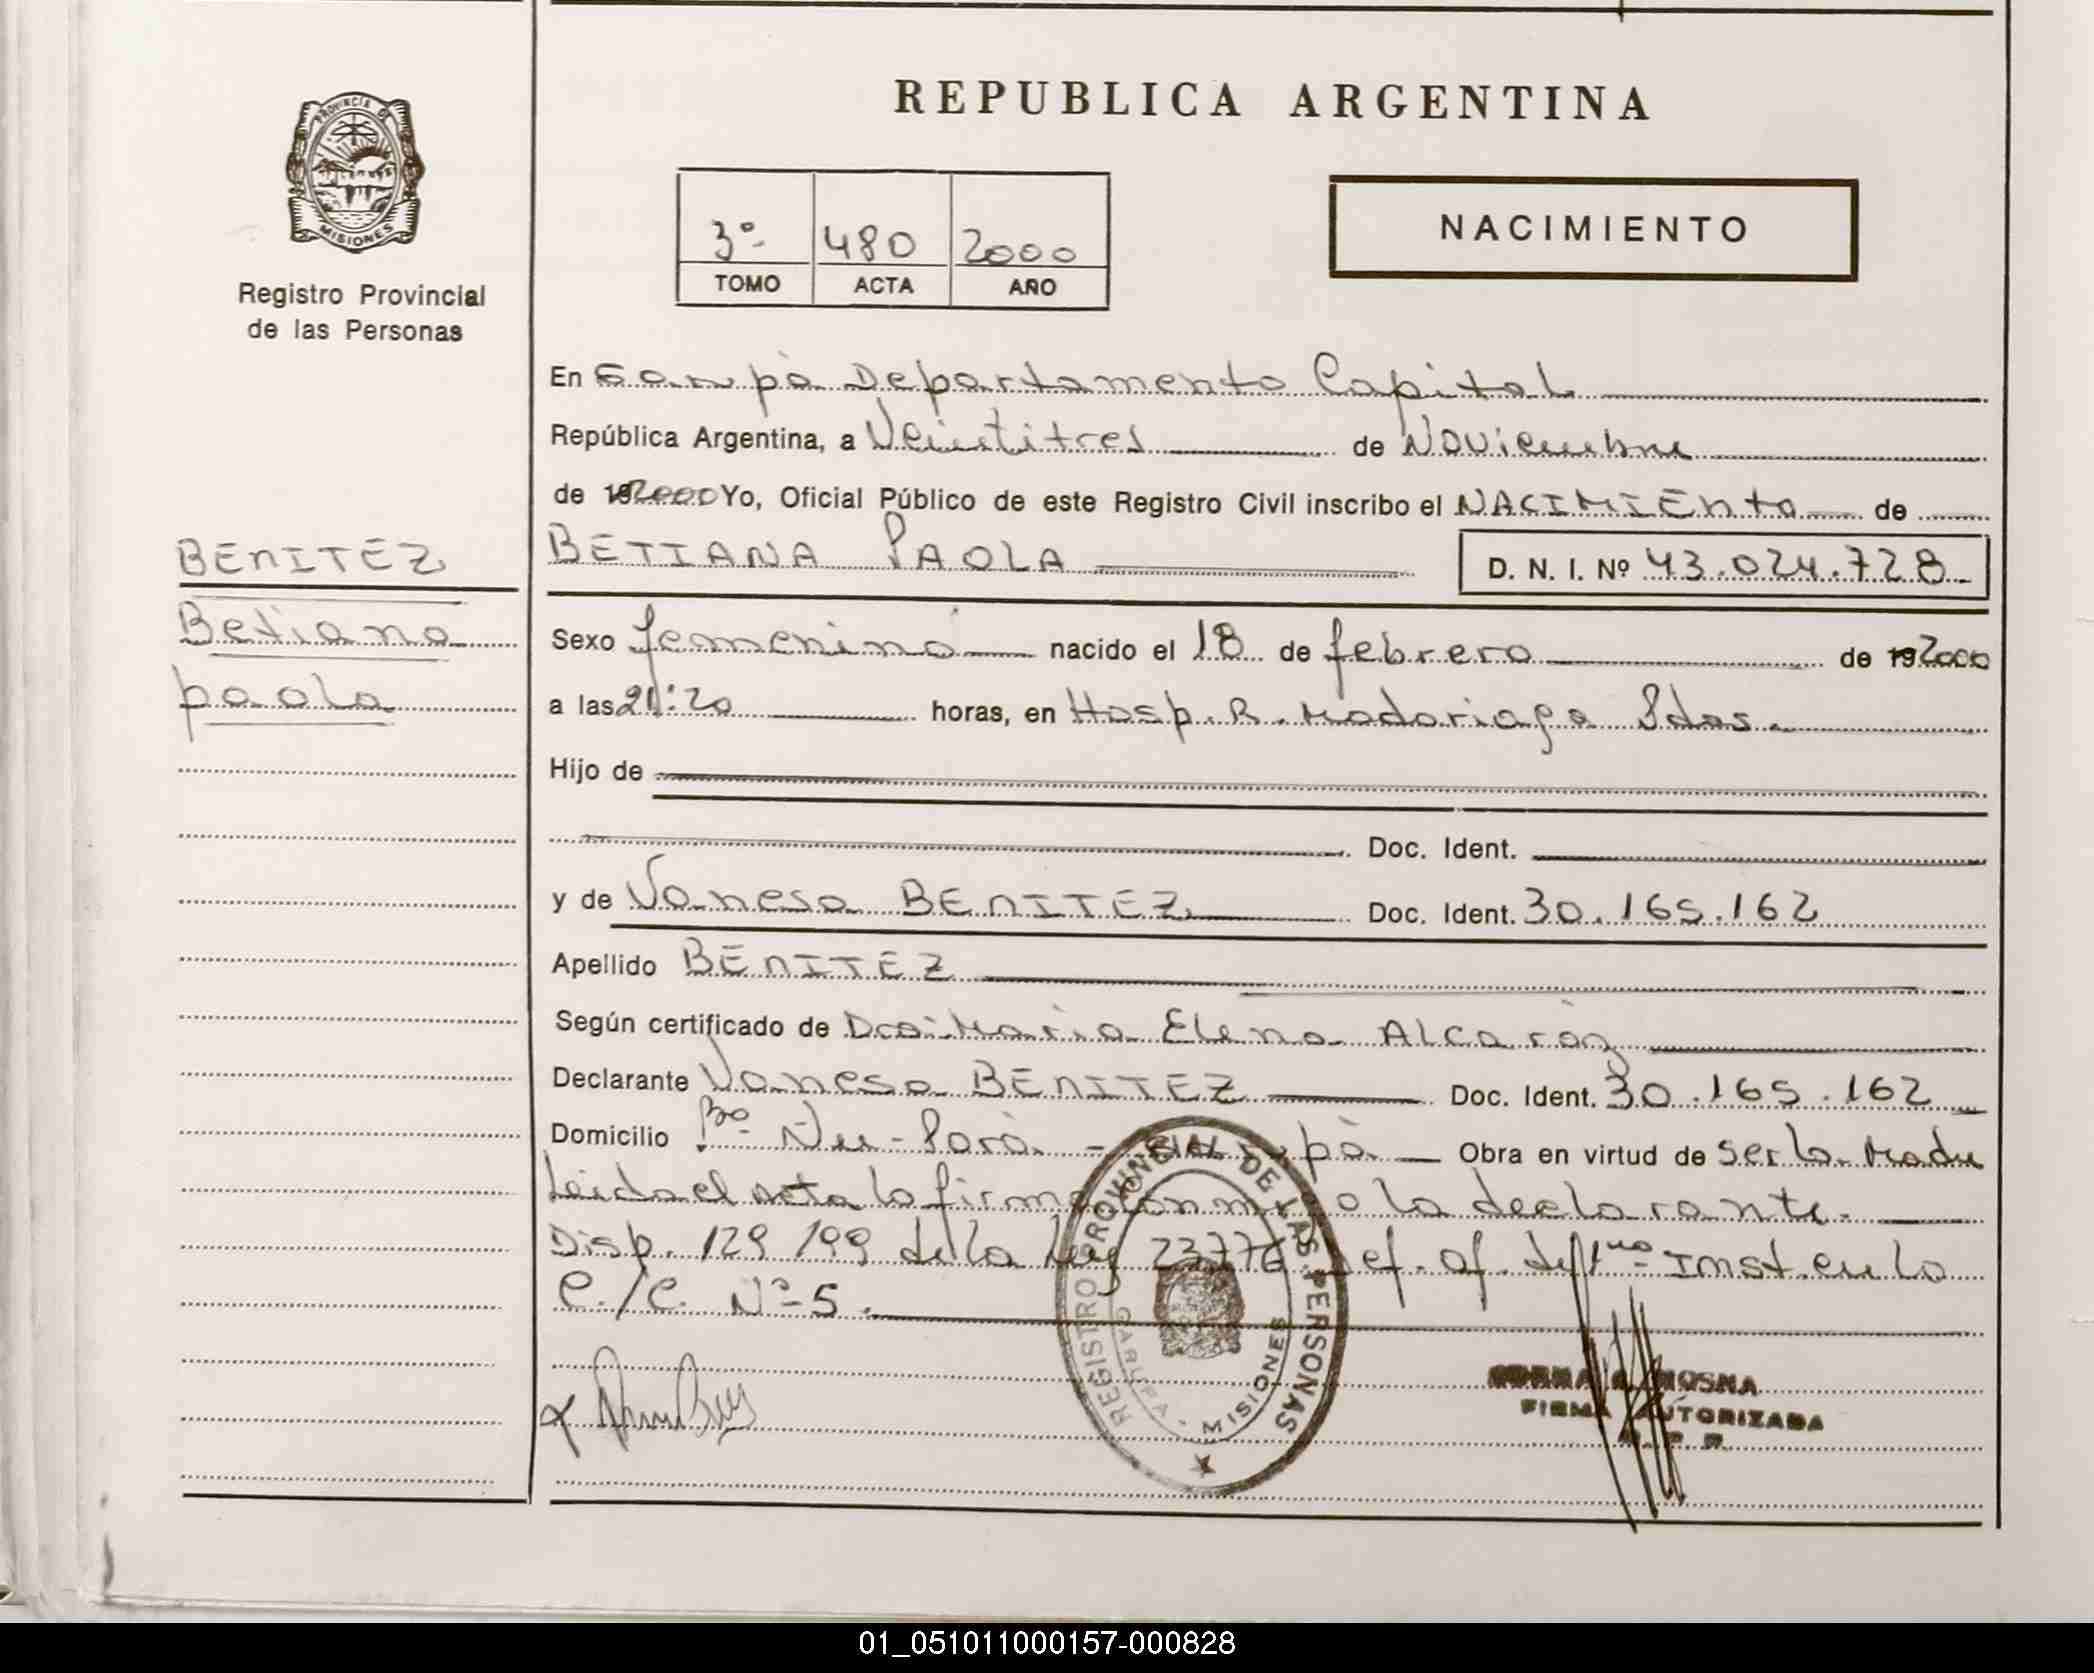 REPUBLICA ARGENTINA
PROVINCIA DE MISIONES
Registro Provincial
de las Personas
3º 480 2000
TOMO ACTA AÑO
NACIMIENTO
En Garupà Departamento Capital
República Argentina, a Veintitres de Noviembre
de 192000 Yo, Oficial Público de este Registro Civil inscribo el NACIMIENTO de
BENITEZ
Betiana
paola
BETIANA PAOLA D. N. I. Nº 43.024.728
Sexo femenino nacido el 18 de febrero de 192000
a las 21:20 horas, en Hosp. R. Madariaga Pdas.
Hijo de
Doc. Ident.
y de Vanesa BENITEZ Doc. Ident. 30.165.162
Apellido BENITEZ
Según certificado de Dra: Maria Elena ALCaràz
Declarante Vanesa BENITEZ Doc. Ident. 30.165.162
Domicilio Bº Ñu-Porà - Obra en virtud de ser la Madre
Leida el acta la firma conmigo la declarante.
Disp. 129/99 de la Ley 23776 Inst. en la
C./C. Nº 5.
REGISTRO PROVINCIAL DE LAS PERSONAS
GARUPA - MISIONES
MOSNA
FIRMA AUTORIZADA
01_051011000157-000828